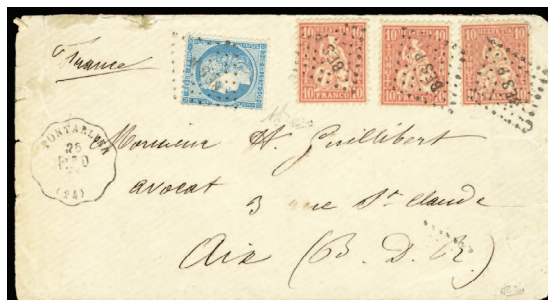 France
10 10 10
FRANCO
PONTARLIER
25
(24)
Monsieur H. Guillibert
avocat 3 rue St Claude
Aix (B. D. R.)